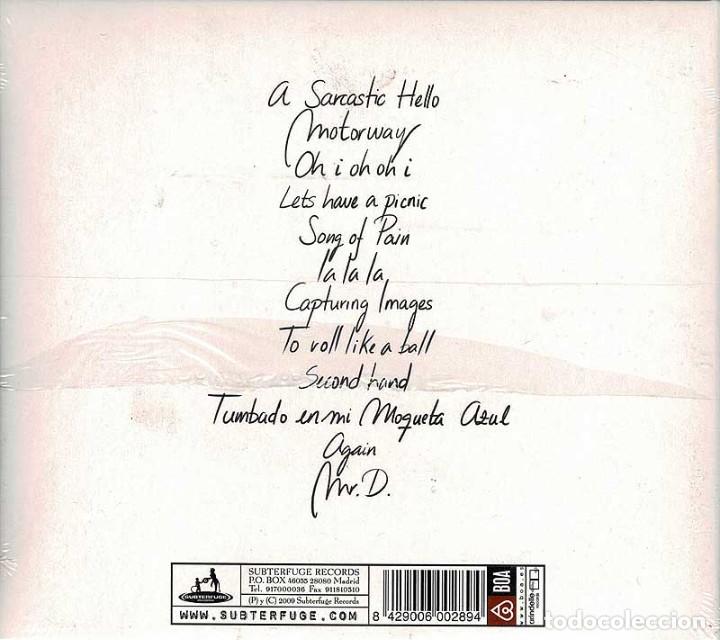 A Sarcastic Hello
Motorway
Oh i oh oh i
Lets have a picnic
Song of Pain
la la la
Capturing Images
To roll like a ball
Second hand
Tumbado en mi Moqueta Azul
Again
Mr. D.
SUBTERFUGE
SUBTERFUGE RECORDS
P.O. BOX 46055 28080 Madrid
Tel. 917000036 Fax 911810510
(P) y (C) 2009 Subterfuge Records
WWW.SUBTERFUGE.COM
8 429006 002894
BOA
www.boa.es
todocoleccion